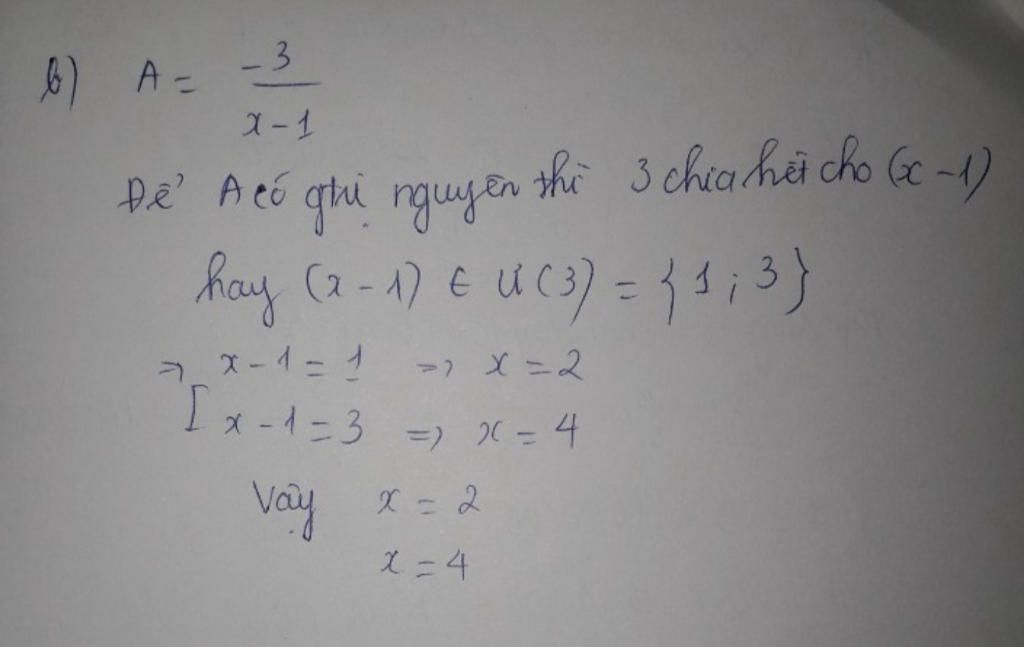 b) A = -3 / x - 1
Để A có gtrị nguyên thì 3 chia hết cho (x - 1)
hay (x - 1) ∈ Ư(3) = {1; 3}
=> x - 1 = 1 => x = 2
[ x - 1 = 3 => x = 4
Vậy x = 2
x = 4